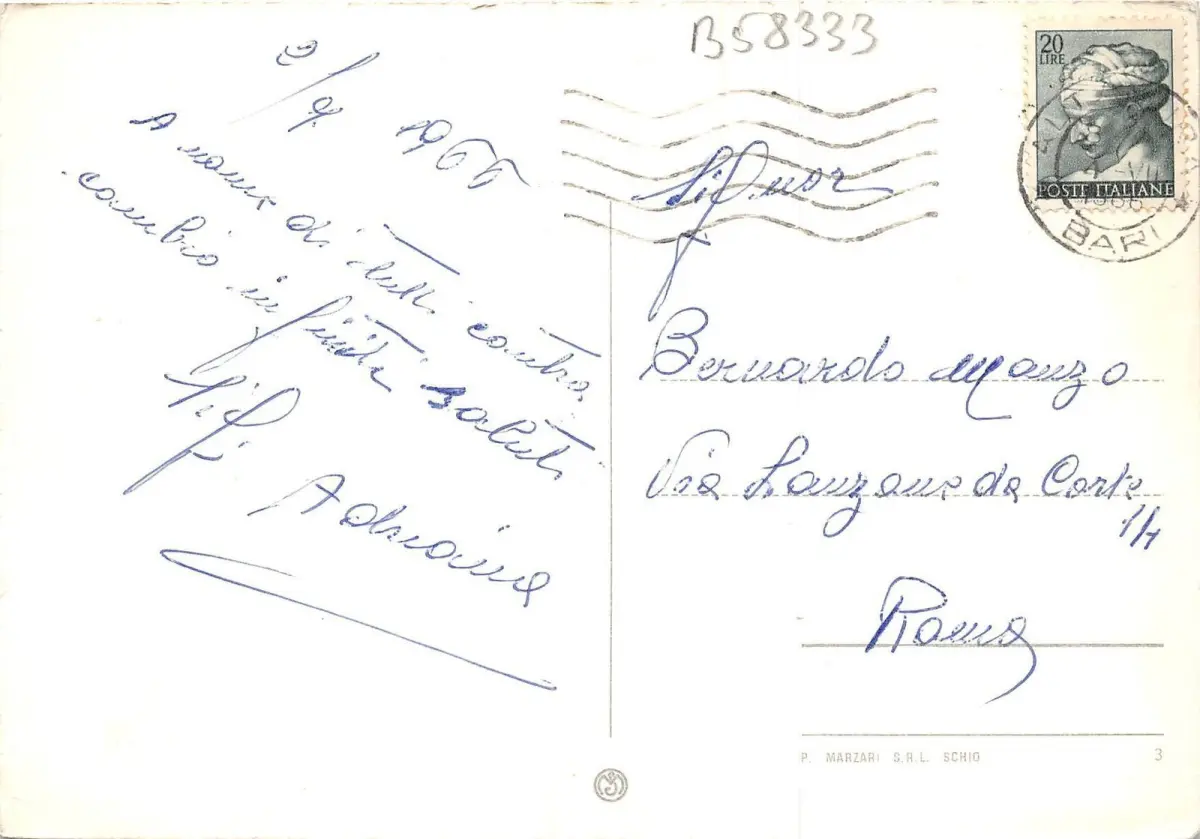 B58333
20
LIRE
POSTE ITALIANE
1966
BARI
2/9 1966
A nome di tutti contra
cambio infiniti saluti
Adriana
Bernardo Manzo
Via Lanzone da Corte
1/H
Roma
P. MARZARI S.R.L. SCHIO
3